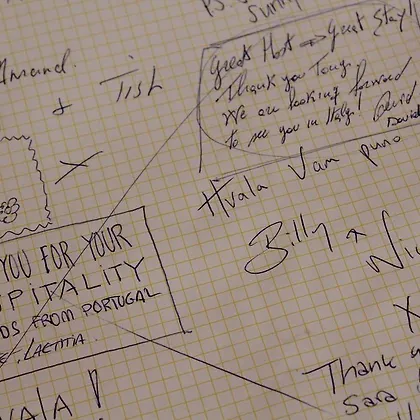 Sunny
Amand.
+ Tish
Great Host → Great Stay!
Thank you Tony.
We are looking forward
to see you in Italy!
David
Hvala Vam puno
X
YOU FOR YOUR
PITALITY
DS FROM PORTUGAL
LAETITIA
Billy +
Thank
Sara
VALA!